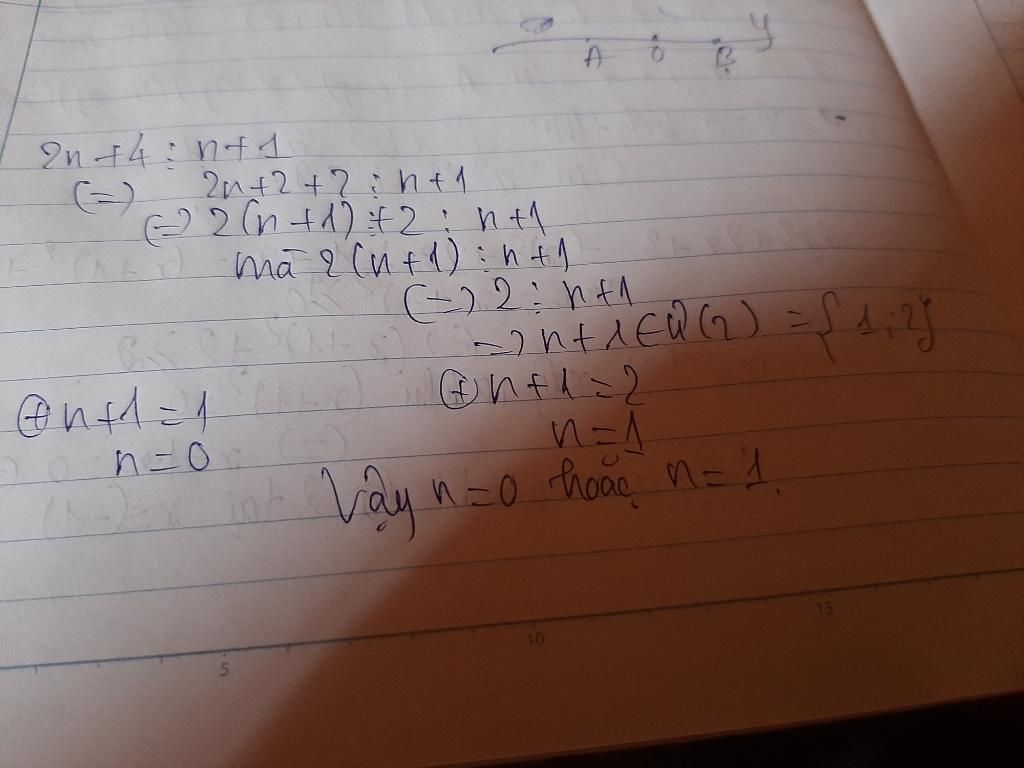 y
A O B
2n+4 ⋮ n+1
(=) 2n+2+2 ⋮ n+1
(=) 2(n+1)+2 ⋮ n+1
mà 2(n+1) ⋮ n+1
(=) 2 ⋮ n+1
=> n+1 ∈ Ư(2) = {1;2}
⊕ n+1=1 ⊕ n+1=2
n=0 n=1
Vậy n=0 hoặc n=1.
5 10 15